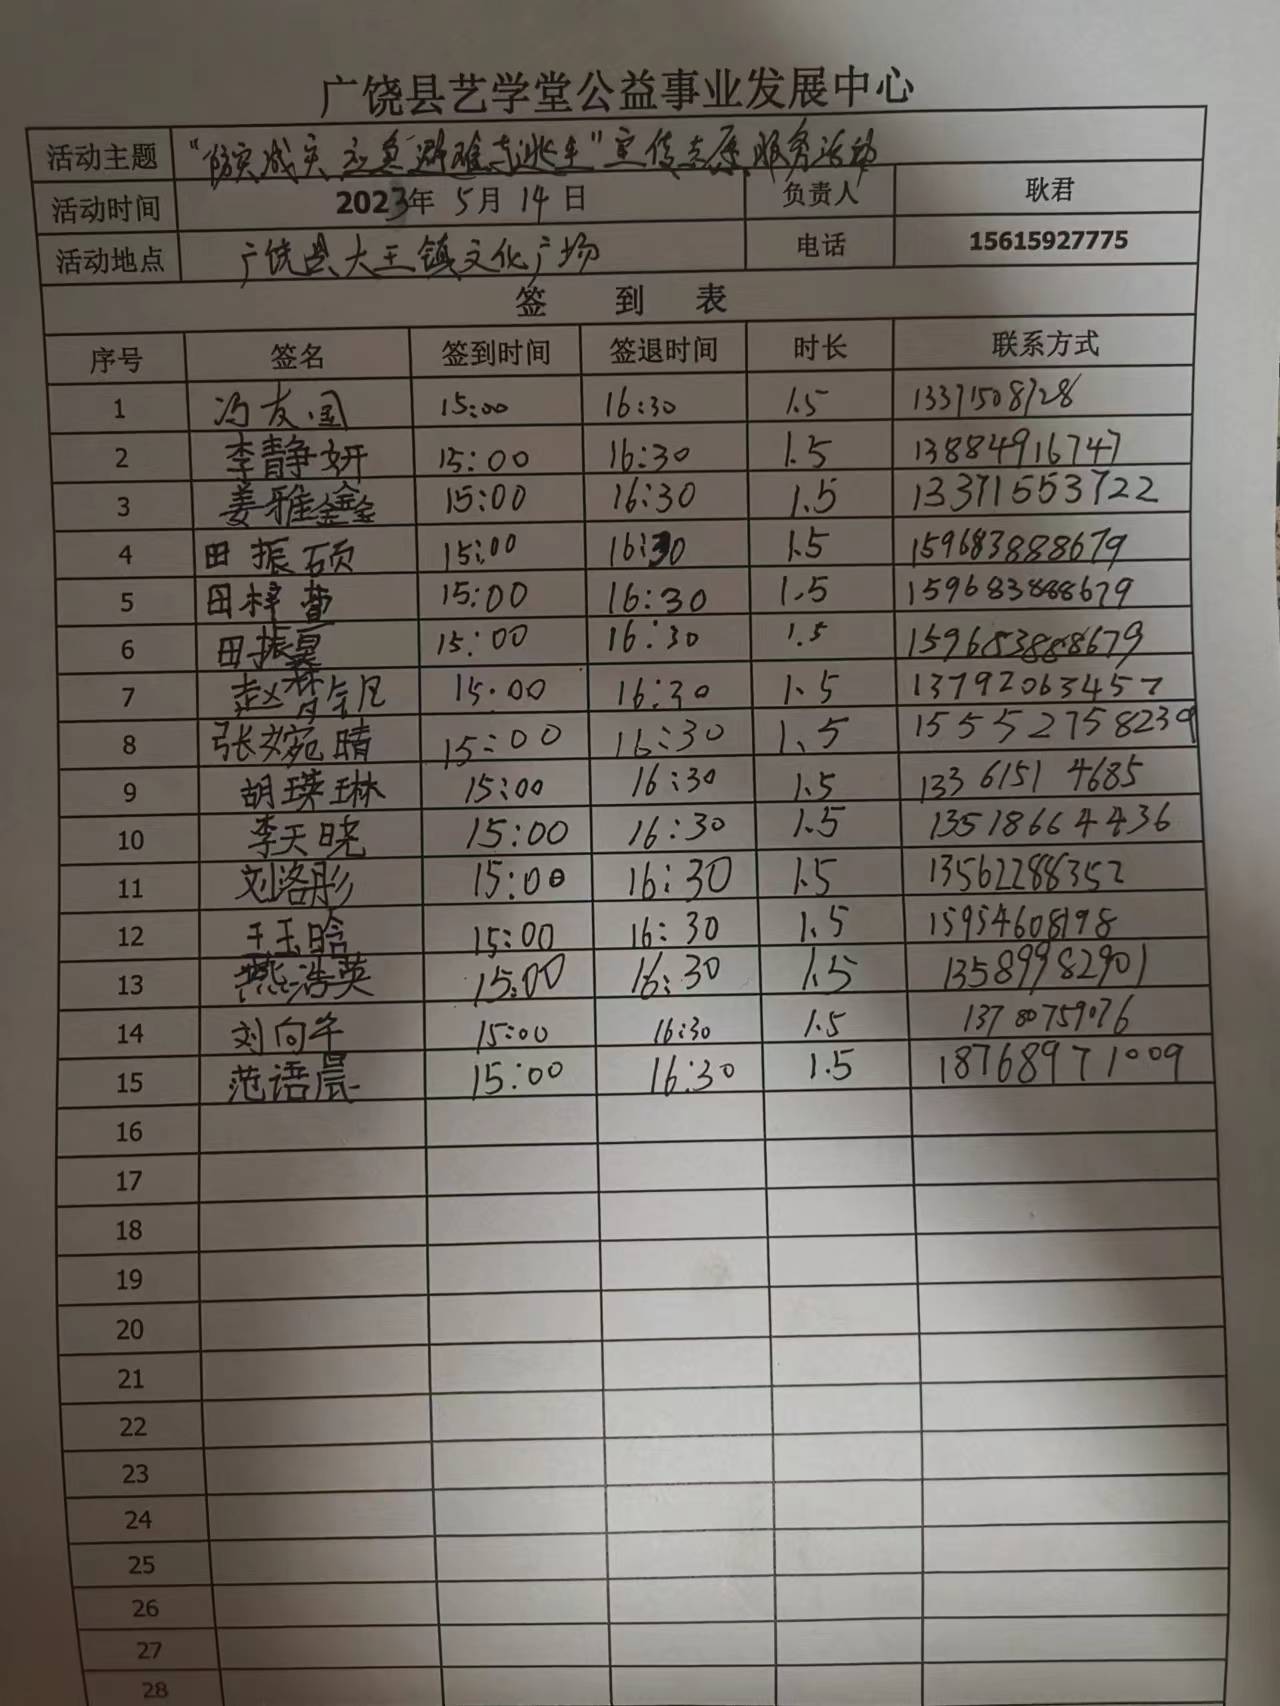 广饶县艺学堂公益事业发展中心
活动主题 “防灾减灾 应急避难与逃生”宣传志愿服务活动
活动时间 2023年 5月 14日 负责人 耿君
活动地点 广饶县大王镇文化广场 电话 15615927775
签 到 表
序号 签名 签到时间 签退时间 时长 联系方式
1 冯友国 15:00 16:30 1.5 13371508728
2 李静妍 15:00 16:30 1.5 13884916747
3 姜雅鑫 15:00 16:30 1.5 13371553722
4 田振硕 15:00 16:30 1.5 159683888679
5 田梓萱 15:00 16:30 1.5 159683888679
6 田振 15:00 16:30 1.5 159683888679
7 赵 凡 15:00 16:30 1.5 13792063457
8 张婉晴 15:00 16:30 1.5 15552758239
9 胡瑛琳 15:00 16:30 1.5 133 6151 4685
10 李天晓 15:00 16:30 1.5 13518664436
11 刘洛彤 15:00 16:30 1.5 13562288352
12 王玉晗 15:00 16:30 1.5 15954608198
13 燕浩英 15:00 16:30 1.5 13589982901
14 刘向午 15:00 16:30 1.5 13780759076
15 范语晨 15:00 16:30 1.5 18768971009
16
17
18
19
20
21
22
23
24
25
26
27
28